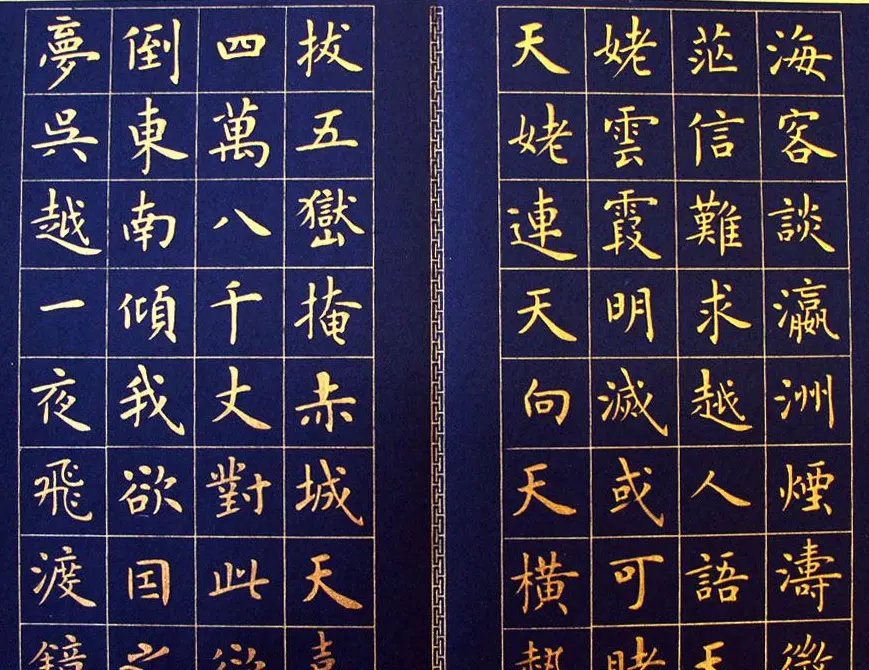 海客談瀛洲煙濤微
茫信難求越人語天
姥雲霞明滅或可睹
天姥連天向天橫勢
拔五嶽掩赤城天臺
四萬八千丈對此欲
倒東南傾我欲因之
夢吳越一夜飛渡鏡